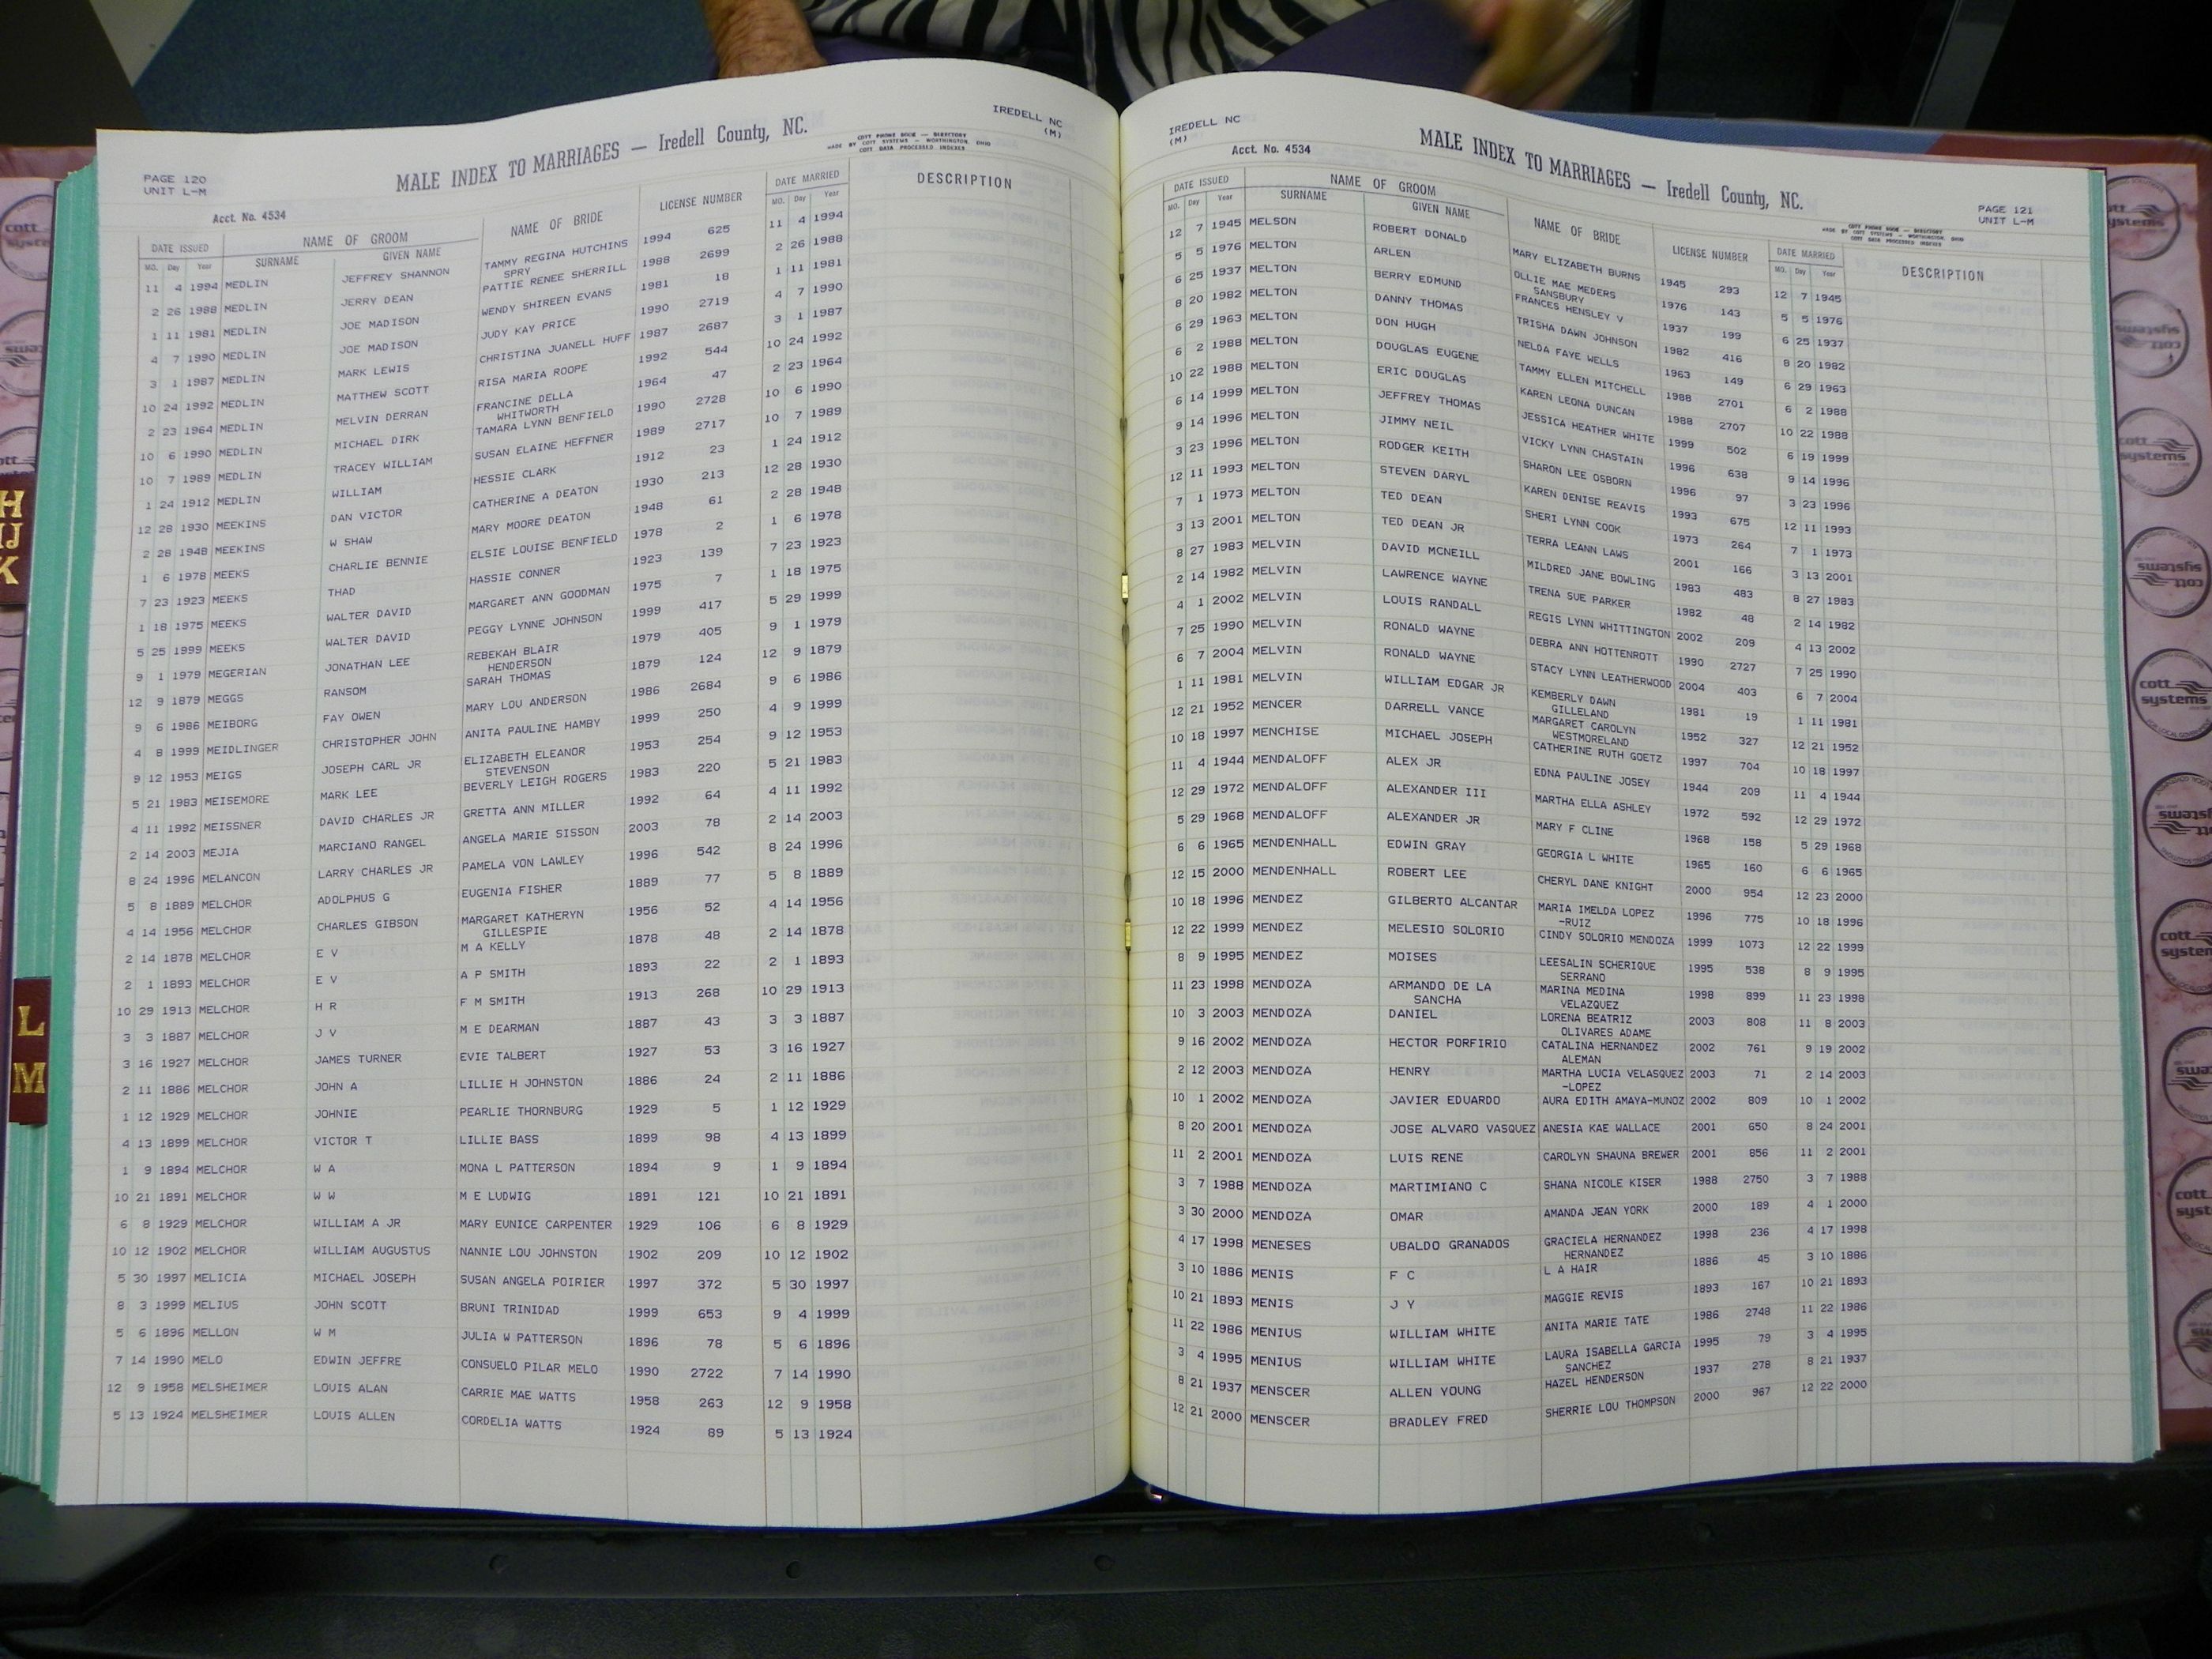 IREDELL NC
(M)
MALE INDEX TO MARRIAGES — Iredell County, NC.
COTT PHONE BOOK — DIRECTORY
MADE BY COTT SYSTEMS — WORTHINGTON, OHIO
COTT DATA PROCESSED INDEXES
PAGE 120
UNIT L-M
Acct. No. 4534
DATE ISSUED NAME OF GROOM NAME OF BRIDE LICENSE NUMBER DATE MARRIED DESCRIPTION
MO. Day Year SURNAME GIVEN NAME MO. Day Year
11 4 1994 MEDLIN JEFFREY SHANNON TAMMY REGINA HUTCHINS 1994 625 11 4 1994
SPRY
2 26 1988 MEDLIN JERRY DEAN PATTIE RENEE SHERRILL 1988 2699 2 26 1988
1 11 1981 MEDLIN JOE MADISON WENDY SHIREEN EVANS 1981 18 1 11 1981
4 7 1990 MEDLIN JOE MADISON JUDY KAY PRICE 1990 2719 4 7 1990
3 1 1987 MEDLIN MARK LEWIS CHRISTINA JUANELL HUFF 1987 2687 3 1 1987
10 24 1992 MEDLIN MATTHEW SCOTT RISA MARIA ROOPE 1992 544 10 24 1992
2 23 1964 MEDLIN MELVIN DERRAN FRANCINE DELLA 1964 47 2 23 1964
WHITWORTH
10 6 1990 MEDLIN MICHAEL DIRK TAMARA LYNN BENFIELD 1990 2728 10 6 1990
10 7 1989 MEDLIN TRACEY WILLIAM SUSAN ELAINE HEFFNER 1989 2717 10 7 1989
1 24 1912 MEDLIN WILLIAM HESSIE CLARK 1912 23 1 24 1912
12 28 1930 MEEKINS DAN VICTOR CATHERINE A DEATON 1930 213 12 28 1930
2 28 1948 MEEKINS W SHAW MARY MOORE DEATON 1948 61 2 28 1948
1 6 1978 MEEKS CHARLIE BENNIE ELSIE LOUISE BENFIELD 1978 2 1 6 1978
7 23 1923 MEEKS THAD HASSIE CONNER 1923 139 7 23 1923
1 18 1975 MEEKS WALTER DAVID MARGARET ANN GOODMAN 1975 7 1 18 1975
5 25 1999 MEEKS WALTER DAVID PEGGY LYNNE JOHNSON 1999 417 5 29 1999
9 1 1979 MEGERIAN JONATHAN LEE REBEKAH BLAIR 1979 405 9 1 1979
HENDERSON
12 9 1879 MEGGS RANSOM SARAH THOMAS 1879 124 12 9 1879
9 6 1986 MEIBORG FAY OWEN MARY LOU ANDERSON 1986 2684 9 6 1986
4 8 1999 MEIDLINGER CHRISTOPHER JOHN ANITA PAULINE HAMBY 1999 250 4 9 1999
9 12 1953 MEIGS JOSEPH CARL JR ELIZABETH ELEANOR 1953 254 9 12 1953
STEVENSON
5 21 1983 MEISEMORE MARK LEE BEVERLY LEIGH ROGERS 1983 220 5 21 1983
4 11 1992 MEISSNER DAVID CHARLES JR GRETTA ANN MILLER 1992 64 4 11 1992
2 14 2003 MEJIA MARCIANO RANGEL ANGELA MARIE SISSON 2003 78 2 14 2003
8 24 1996 MELANCON LARRY CHARLES JR PAMELA VON LAWLEY 1996 542 8 24 1996
5 8 1889 MELCHOR ADOLPHUS G EUGENIA FISHER 1889 77 5 8 1889
4 14 1956 MELCHOR CHARLES GIBSON MARGARET KATHERYN 1956 52 4 14 1956
GILLESPIE
2 14 1878 MELCHOR E V M A KELLY 1878 48 2 14 1878
2 1 1893 MELCHOR E V A P SMITH 1893 22 2 1 1893
10 29 1913 MELCHOR H R F M SMITH 1913 268 10 29 1913
3 3 1887 MELCHOR J V M E DEARMAN 1887 43 3 3 1887
3 16 1927 MELCHOR JAMES TURNER EVIE TALBERT 1927 53 3 16 1927
2 11 1886 MELCHOR JOHN A LILLIE H JOHNSTON 1886 24 2 11 1886
1 12 1929 MELCHOR JOHNIE PEARLIE THORNBURG 1929 5 1 12 1929
4 13 1899 MELCHOR VICTOR T LILLIE BASS 1899 98 4 13 1899
1 9 1894 MELCHOR W A MONA L PATTERSON 1894 9 1 9 1894
10 21 1891 MELCHOR W W M E LUDWIG 1891 121 10 21 1891
6 8 1929 MELCHOR WILLIAM A JR MARY EUNICE CARPENTER 1929 106 6 8 1929
10 12 1902 MELCHOR WILLIAM AUGUSTUS NANNIE LOU JOHNSTON 1902 209 10 12 1902
5 30 1997 MELICIA MICHAEL JOSEPH SUSAN ANGELA POIRIER 1997 372 5 30 1997
8 3 1999 MELIUS JOHN SCOTT BRUNI TRINIDAD 1999 653 9 4 1999
5 6 1896 MELLON W M JULIA W PATTERSON 1896 78 5 6 1896
7 14 1990 MELO EDWIN JEFFRE CONSUELO PILAR MELO 1990 2722 7 14 1990
12 9 1958 MELSHEIMER LOUIS ALAN CARRIE MAE WATTS 1958 263 12 9 1958
5 13 1924 MELSHEIMER LOUIS ALLEN CORDELIA WATTS 1924 89 5 13 1924
IREDELL NC
(M)
Acct. No. 4534
MALE INDEX TO MARRIAGES — Iredell County, NC.
COTT PHONE BOOK — DIRECTORY
MADE BY COTT SYSTEMS — WORTHINGTON, OHIO
COTT DATA PROCESSED INDEXES
PAGE 121
UNIT L-M
DATE ISSUED NAME OF GROOM NAME OF BRIDE LICENSE NUMBER DATE MARRIED DESCRIPTION
MO. Day Year SURNAME GIVEN NAME MO. Day Year
12 7 1945 MELSON ROBERT DONALD MARY ELIZABETH BURNS 1945 293 12 7 1945
5 5 1976 MELTON ARLEN OLLIE MAE MEDERS 1976 143 5 5 1976
SANSBURY
6 25 1937 MELTON BERRY EDMUND FRANCES HENSLEY V 1937 199 6 25 1937
8 20 1982 MELTON DANNY THOMAS TRISHA DAWN JOHNSON 1982 416 8 20 1982
6 29 1963 MELTON DON HUGH NELDA FAYE WELLS 1963 149 6 29 1963
6 2 1988 MELTON DOUGLAS EUGENE TAMMY ELLEN MITCHELL 1988 2701 6 2 1988
10 22 1988 MELTON ERIC DOUGLAS KAREN LEONA DUNCAN 1988 2707 10 22 1988
6 14 1999 MELTON JEFFREY THOMAS JESSICA HEATHER WHITE 1999 502 6 19 1999
9 14 1996 MELTON JIMMY NEIL VICKY LYNN CHASTAIN 1996 638 9 14 1996
3 23 1996 MELTON RODGER KEITH SHARON LEE OSBORN 1996 97 3 23 1996
12 11 1993 MELTON STEVEN DARYL KAREN DENISE REAVIS 1993 675 12 11 1993
7 1 1973 MELTON TED DEAN SHERI LYNN COOK 1973 264 7 1 1973
3 13 2001 MELTON TED DEAN JR TERRA LEANN LAWS 2001 166 3 13 2001
8 27 1983 MELVIN DAVID MCNEILL MILDRED JANE BOWLING 1983 483 8 27 1983
2 14 1982 MELVIN LAWRENCE WAYNE TRENA SUE PARKER 1982 48 2 14 1982
4 1 2002 MELVIN LOUIS RANDALL REGIS LYNN WHITTINGTON 2002 209 4 13 2002
7 25 1990 MELVIN RONALD WAYNE DEBRA ANN HOTTENROTT 1990 2727 7 25 1990
6 7 2004 MELVIN RONALD WAYNE STACY LYNN LEATHERWOOD 2004 403 6 7 2004
1 11 1981 MELVIN WILLIAM EDGAR JR KEMBERLY DAWN 1981 19 1 11 1981
GILLELAND
12 21 1952 MENCER DARRELL VANCE MARGARET CAROLYN 1952 327 12 21 1952
WESTMORELAND
10 18 1997 MENCHISE MICHAEL JOSEPH CATHERINE RUTH GOETZ 1997 704 10 18 1997
11 4 1944 MENDALOFF ALEX JR EDNA PAULINE JOSEY 1944 209 11 4 1944
12 29 1972 MENDALOFF ALEXANDER III MARTHA ELLA ASHLEY 1972 592 12 29 1972
5 29 1968 MENDALOFF ALEXANDER JR MARY F CLINE 1968 158 5 29 1968
6 6 1965 MENDENHALL EDWIN GRAY GEORGIA L WHITE 1965 160 6 6 1965
12 15 2000 MENDENHALL ROBERT LEE CHERYL DANE KNIGHT 2000 954 12 23 2000
10 18 1996 MENDEZ GILBERTO ALCANTAR MARIA IMELDA LOPEZ 1996 775 10 18 1996
-RUIZ
12 22 1999 MENDEZ MELESIO SOLORIO CINDY SOLORIO MENDOZA 1999 1073 12 22 1999
8 9 1995 MENDEZ MOISES LEESALIN SCHERIQUE 1995 538 8 9 1995
SERRANO
11 23 1998 MENDOZA ARMANDO DE LA MARINA MEDINA 1998 899 11 23 1998
SANCHA VELAZQUEZ
10 3 2003 MENDOZA DANIEL LORENA BEATRIZ 2003 808 11 8 2003
OLIVARES ADAME
9 16 2002 MENDOZA HECTOR PORFIRIO CATALINA HERNANDEZ 2002 761 9 19 2002
ALEMAN
2 12 2003 MENDOZA HENRY MARTHA LUCIA VELASQUEZ 2003 71 2 14 2003
-LOPEZ
10 1 2002 MENDOZA JAVIER EDUARDO AURA EDITH AMAYA-MUNOZ 2002 809 10 1 2002
8 20 2001 MENDOZA JOSE ALVARO VASQUEZ ANESIA KAE WALLACE 2001 650 8 24 2001
11 2 2001 MENDOZA LUIS RENE CAROLYN SHAUNA BREWER 2001 856 11 2 2001
3 7 1988 MENDOZA MARTIMIANO C SHANA NICOLE KISER 1988 2750 3 7 1988
3 30 2000 MENDOZA OMAR AMANDA JEAN YORK 2000 189 4 1 2000
4 17 1998 MENESES UBALDO GRANADOS GRACIELA HERNANDEZ 1998 236 4 17 1998
HERNANDEZ
3 10 1886 MENIS F C L A HAIR 1886 45 3 10 1886
10 21 1893 MENIS J Y MAGGIE REVIS 1893 167 10 21 1893
11 22 1986 MENIUS WILLIAM WHITE ANITA MARIE TATE 1986 2748 11 22 1986
3 4 1995 MENIUS WILLIAM WHITE LAURA ISABELLA GARCIA 1995 79 3 4 1995
SANCHEZ
8 21 1937 MENSCER ALLEN YOUNG HAZEL HENDERSON 1937 278 8 21 1937
12 21 2000 MENSCER BRADLEY FRED SHERRIE LOU THOMPSON 2000 967 12 22 2000
H
IJ
K
L
M
cott
systems